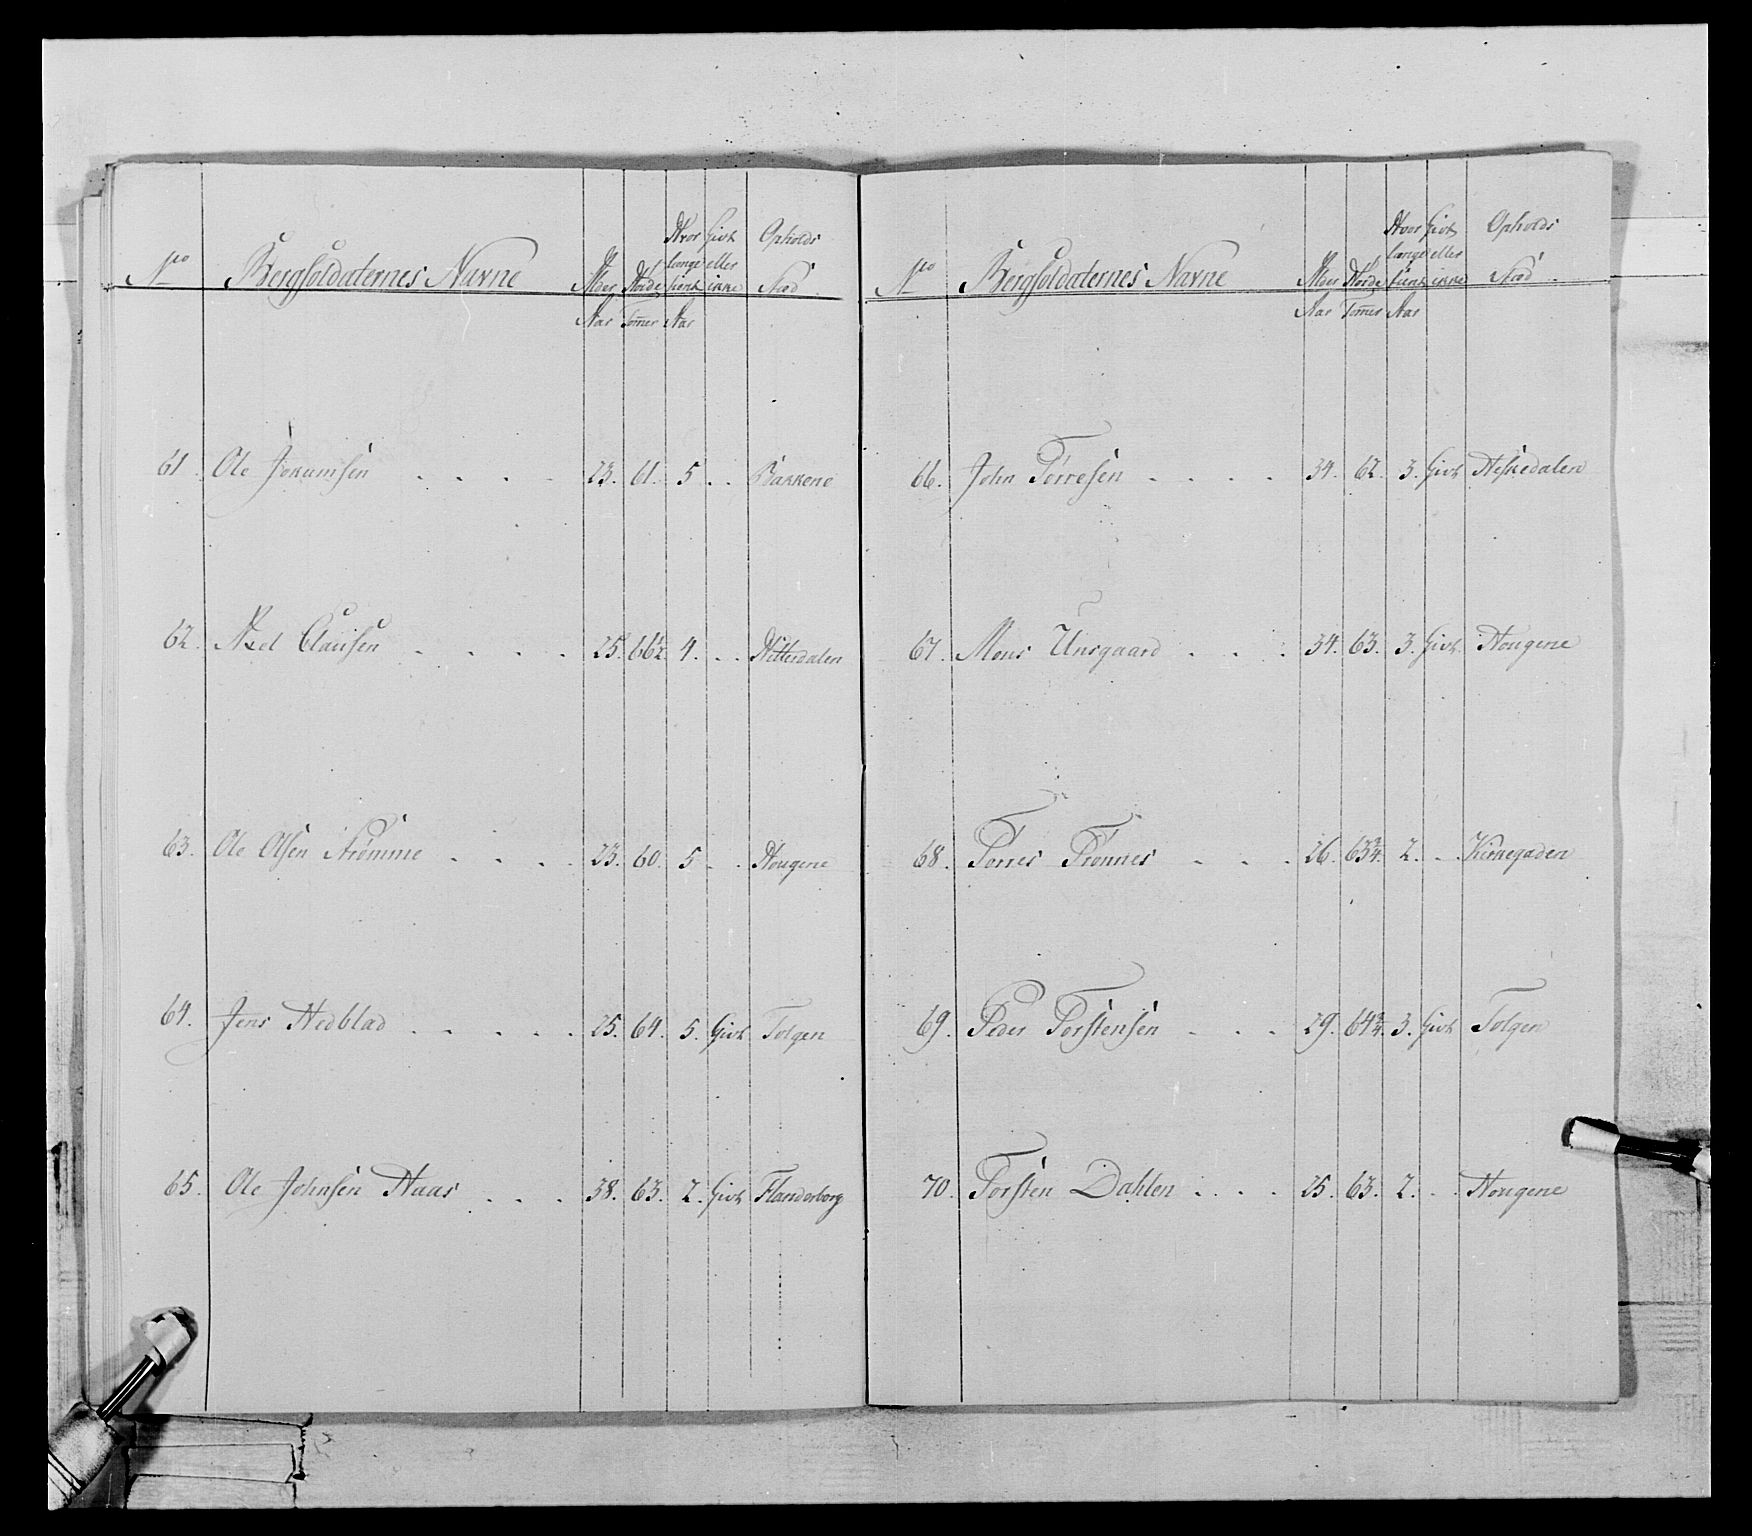 No Bergsoldaternes Navne Alder Høide Hvor længe tient Givt eller ikke Opholds Stæd.
Aar Tom̄er Aar
61. Ole Jokumsen . . . . 23. 61. 5 . . Bakkene
62. Axel Clausen . . . . 25. 66½ 4. . . Hitterdalen
63. Ole Olsen Strømme . . . . 23. 60. 5 . . Hougene
64. Jens Hedblad . . . . . 25. 64. 5. Givt Tolgen
65. Ole Johnsen Aaas . . . 38. 63. 2. Givt Flanderborg
No Bergsoldaternes Navne Alder Høide Hvor længe tient Givt eller ikke Opholds Stæd.
Aar Tom̄er Aar
66. John Torresen . . . . 34. 62. 3. Givt Heskedalen
67. Mons Unsgaard . . . 34. 63. 3. Givt Hougene
68. Torres Trønnes . . . 26. 63¾. 2. . . Kirkegaden
69. Peder Torstensen . . . 29. 64¾. 3. Givt Tolgen
70. Torsten Dahlen . . . . 25. 63. 2. . . Hougene